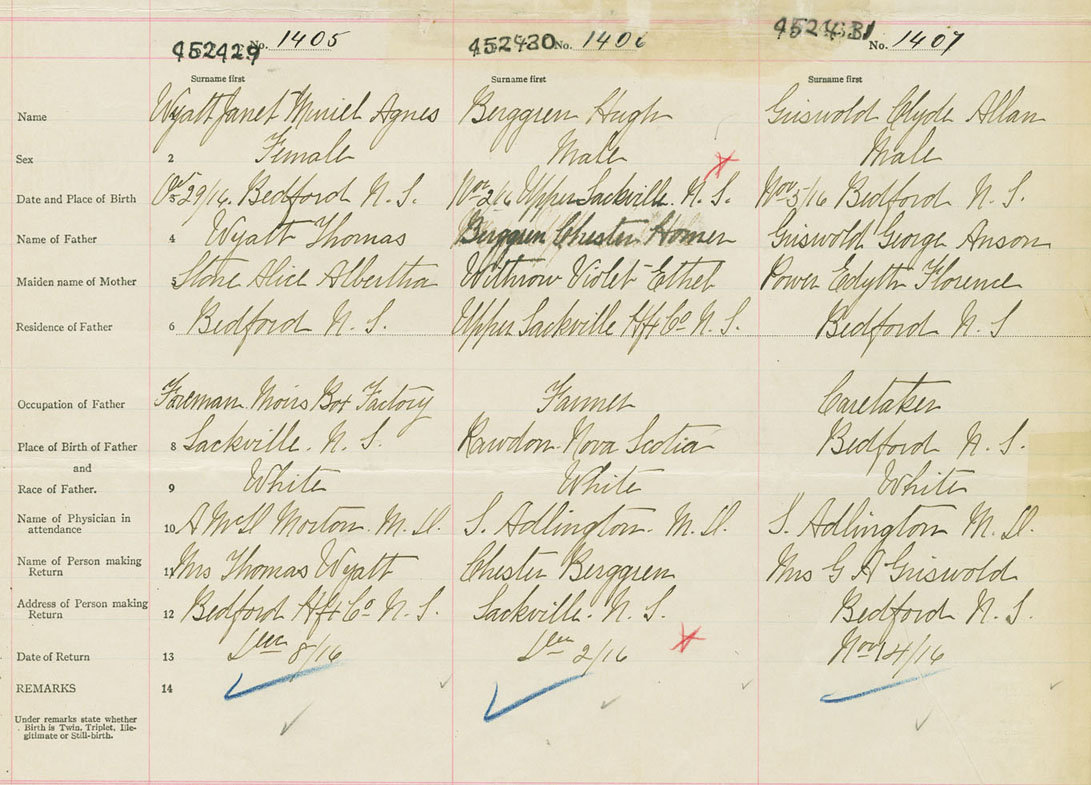 452429 No. 1405 452430 No. 1406 452431 No. 1407
Surname first Surname first Surname first
Name Wyatt Janet Muriel Agnes Berggren Hugh Griswold Clyde Allan
Sex 2 Female Male Male
Date and Place of Birth 29/16. Bedford N. S. Nov 2/16 Upper Sackville. N. S. Nov 5/16 Bedford N. S.
Name of Father 4 Wyatt Thomas Berggren Chester Homer Griswold George Anson
Maiden name of Mother 5 Stone Alice Albertha Withrow Violet Ethel Power Edyth Florence
Residence of Father 6 Bedford N. S. Upper Sackville Hfx Co N. S. Bedford N. S
Occupation of Father Foreman Moirs Box Factory Farmer Caretaker
Place of Birth of Father 8 Sackville. N. S. Rawdon Nova Scotia Bedford N. S.
and
Race of Father. 9 White White White
Name of Physician in
attendance 10 Morton. M. D. S. Adlington. M. D. S. Adlington M. D.
Name of Person making
Return 11 Mrs Thomas Wyatt Chester Berggren Mrs G A Griswold
Address of Person making
Return 12 Bedford Hfx Co N. S. Sackville. N. S. Bedford N. S.
Date of Return 13 Dec 8/16 Dec 2/16 Nov 14/16
REMARKS 14
Under remarks state whether
Birth is Twin, Triplet, Ille-
gitimate or Still-birth.